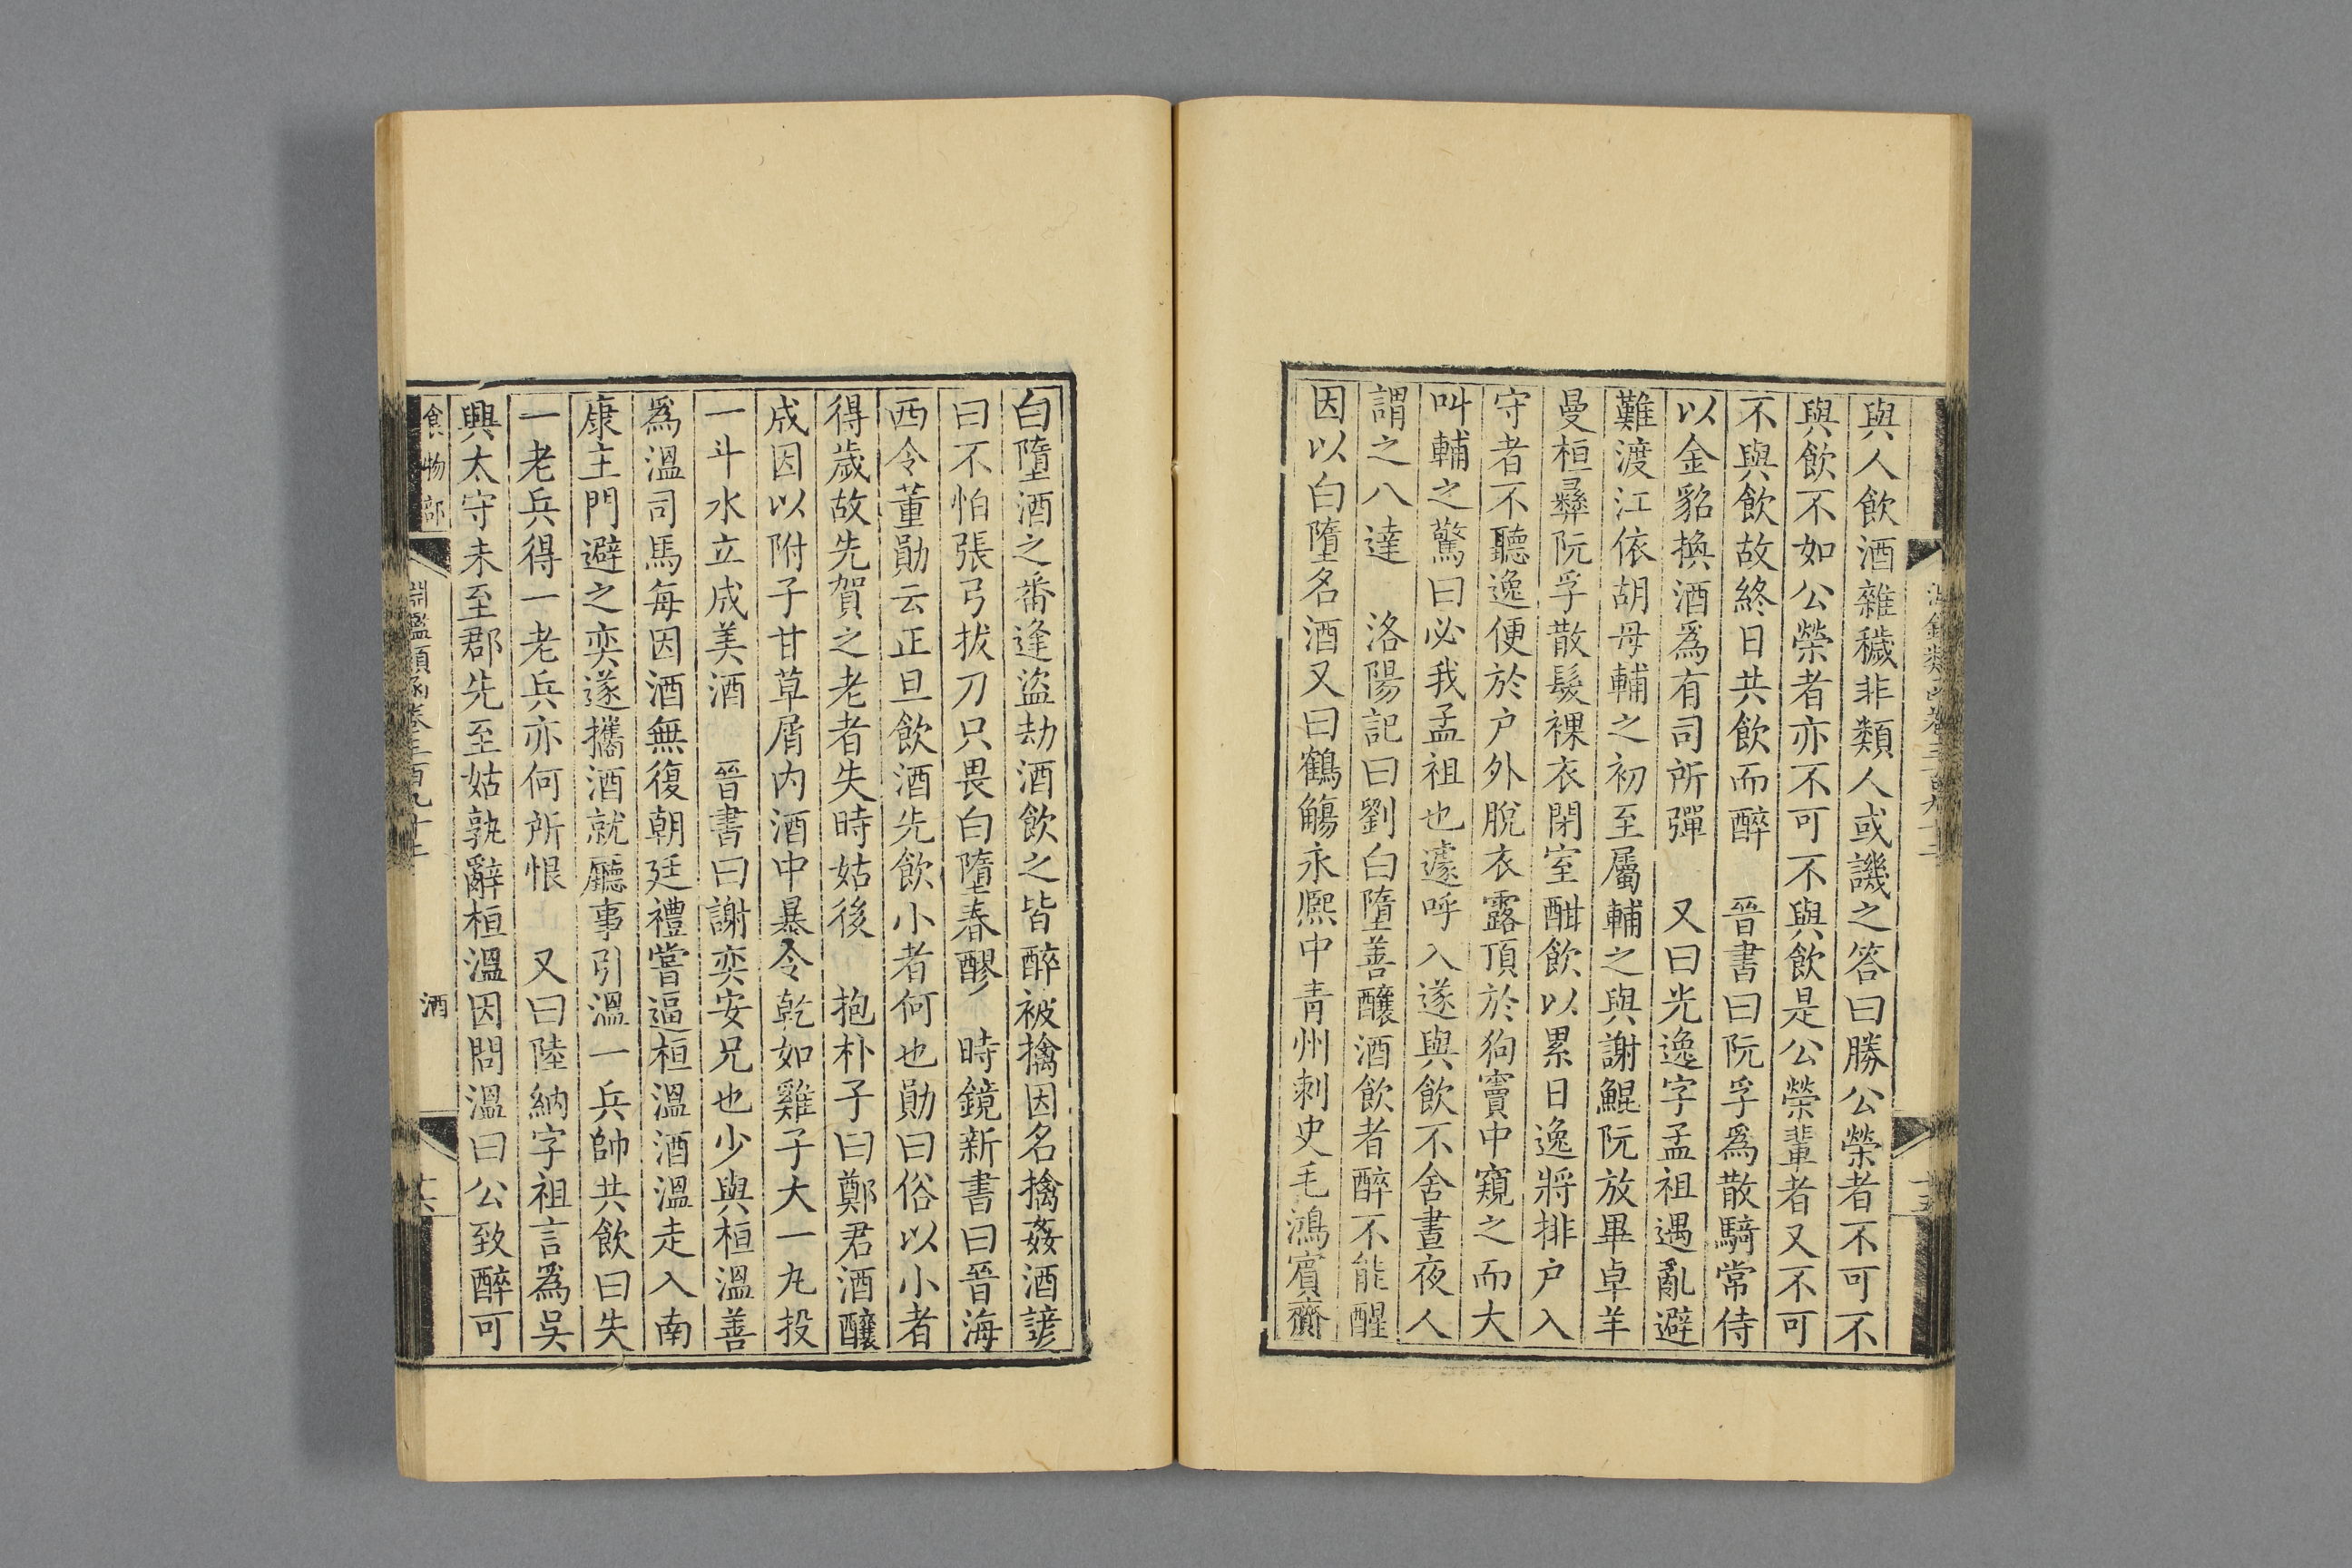 與人飲酒雜穢非類人或譏之答曰勝公榮者不可不
與飲不如公榮者亦不可不與飲是公榮輩者又不可
不與飲故終日共飲而醉　晉書曰阮孚爲散騎常侍
以金貂換酒爲有司所彈　又曰光逸字孟祖遇亂避
難渡江依胡母輔之初至屬輔之與謝鯤阮放畢卓羊
曼桓彝阮孚散髮裸衣閉室酣飲以累日逸將排户入
守者不聽逸便於户外脫衣露頂於狗竇中窺之而大
叫輔之驚曰必我孟祖也遽呼入遂與飲不舍晝夜人
謂之八達　洛陽記曰劉白墮善釀酒飲者醉不能醒
因以白墮名酒又曰鶴觴永熙中青州刺史毛鴻賓齎
白墮酒之番逢盜劫酒飲之皆醉被擒因名擒姦酒諺
曰不怕張弓拔刀只畏白墮春醪　時鏡新書曰晉海
西令董勛云正旦飲酒先飲小者何也勛曰俗以小者
得歲故先賀之老者失時姑後　抱朴子曰鄭君酒釀
成因以附子甘草屑内酒中暴令乾如雞子大一丸投
一斗水立成美酒　晉書曰謝奕安兄也少與桓溫善
爲溫司馬每因酒無復朝廷禮嘗逼桓溫酒溫走入南
康主門避之奕遂攜酒就廳事引溫一兵帥共飲曰失
一老兵得一老兵亦何所恨　又曰陸納字祖言爲吳
興太守未至郡先至姑孰辭桓溫因問溫曰公致醉可
食物部　淵鑑類函卷三百九十二　酒　十六